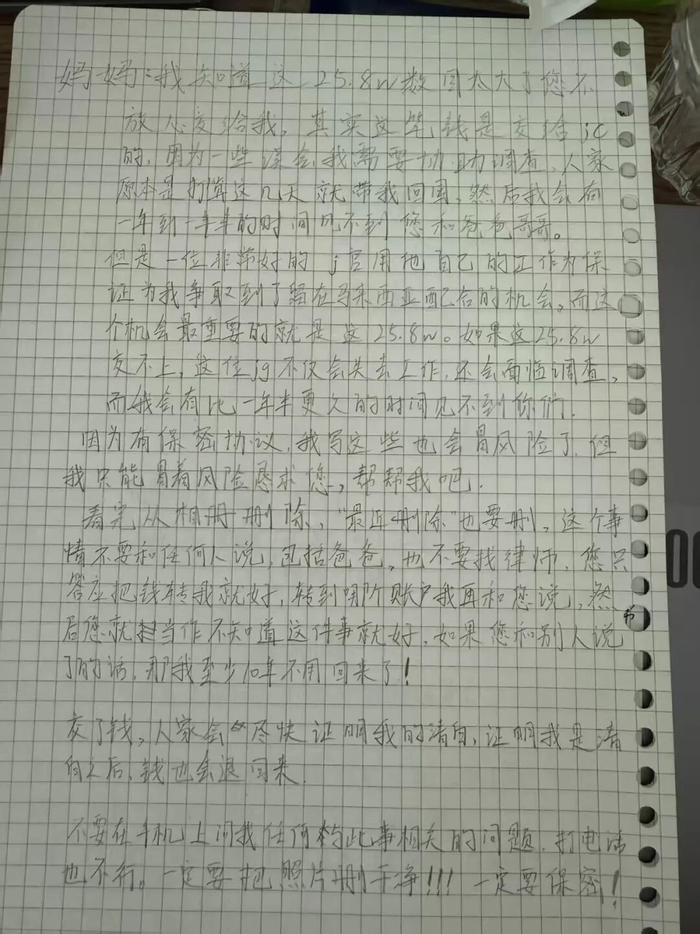 妈妈:我知道这 25.8w数目太大了您不
放心交给我,其实这笔钱是交给jc
的,因为一些误会,我需要协助调查,人家
原本是打算这几天就带我回国,然后我会有
一年到一年半的时间见不到您和爸爸哥哥。
但是一位非常好的 j官用他自己的工作为保
证为我争取到了留在马来西亚配合的机会,而这
个机会最重要的就是这25.8w。如果这25.8w
交不上,这位jg不仅会失去工作,还会面临调查,
而我会有比一年半更久的时间见不到你们.
因为有保密协议,我写这些也会冒风险了,但
我只能冒着风险恳求您,帮帮我吧.
看完从相册删除,"最近删除"也要删,这个事
情不要和任何人说,包括爸爸,也不要找律师.您只
答应把钱转我就好,转到哪个账户我再和您说,然
后您就担当作不知道这件事就好,如果您和别人说
了的话,那我至少10年不用回来了!
交了钱,人家会尽快证明我的清白,证明我是清
白之后,钱也会退回来.
不要在手机上问我任何和此事相关的问题.打电话
也不行。一定要把照片删干净!!! 一定要保密!